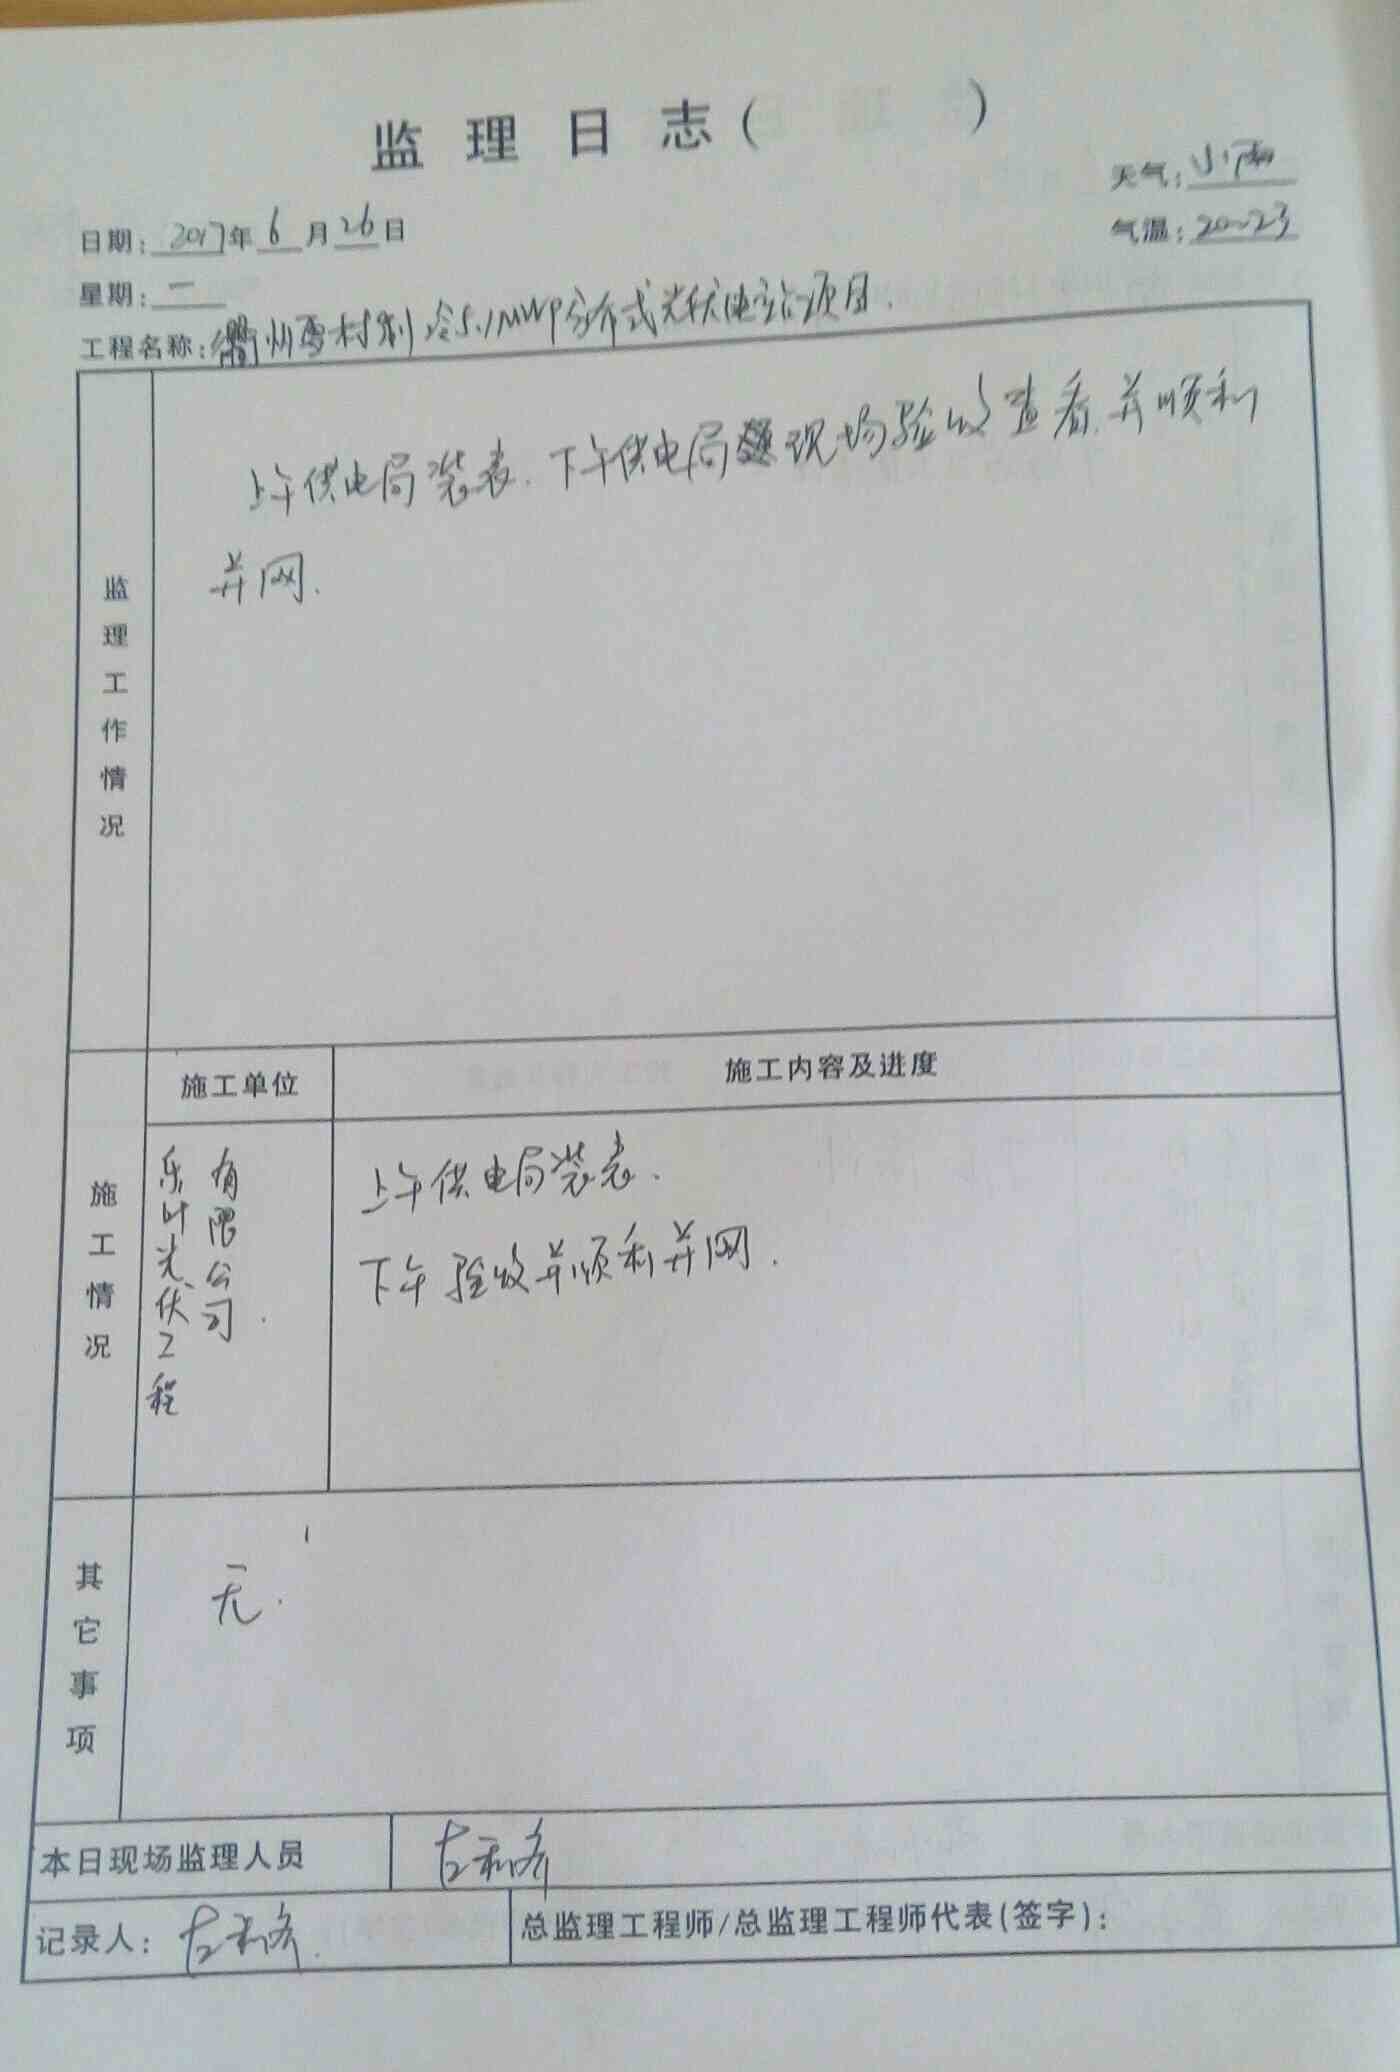 监理日志（ ）
天气：小雨
日期：2017年6月26日
气温：20~23
星期：一
工程名称：衢州雪村制冷5.1MWP分布式光伏电站项目.
监理工作情况
上午供电局装表.下午供电局现场验收查看.并顺利
并网.
施工情况
施工单位
施工内容及进度
乐叶光伏工程
有限公司.
上午供电局装表.
下午验收并顺利并网.
其它事项
无.
本日现场监理人员
记录人：
总监理工程师/总监理工程师代表(签字)：